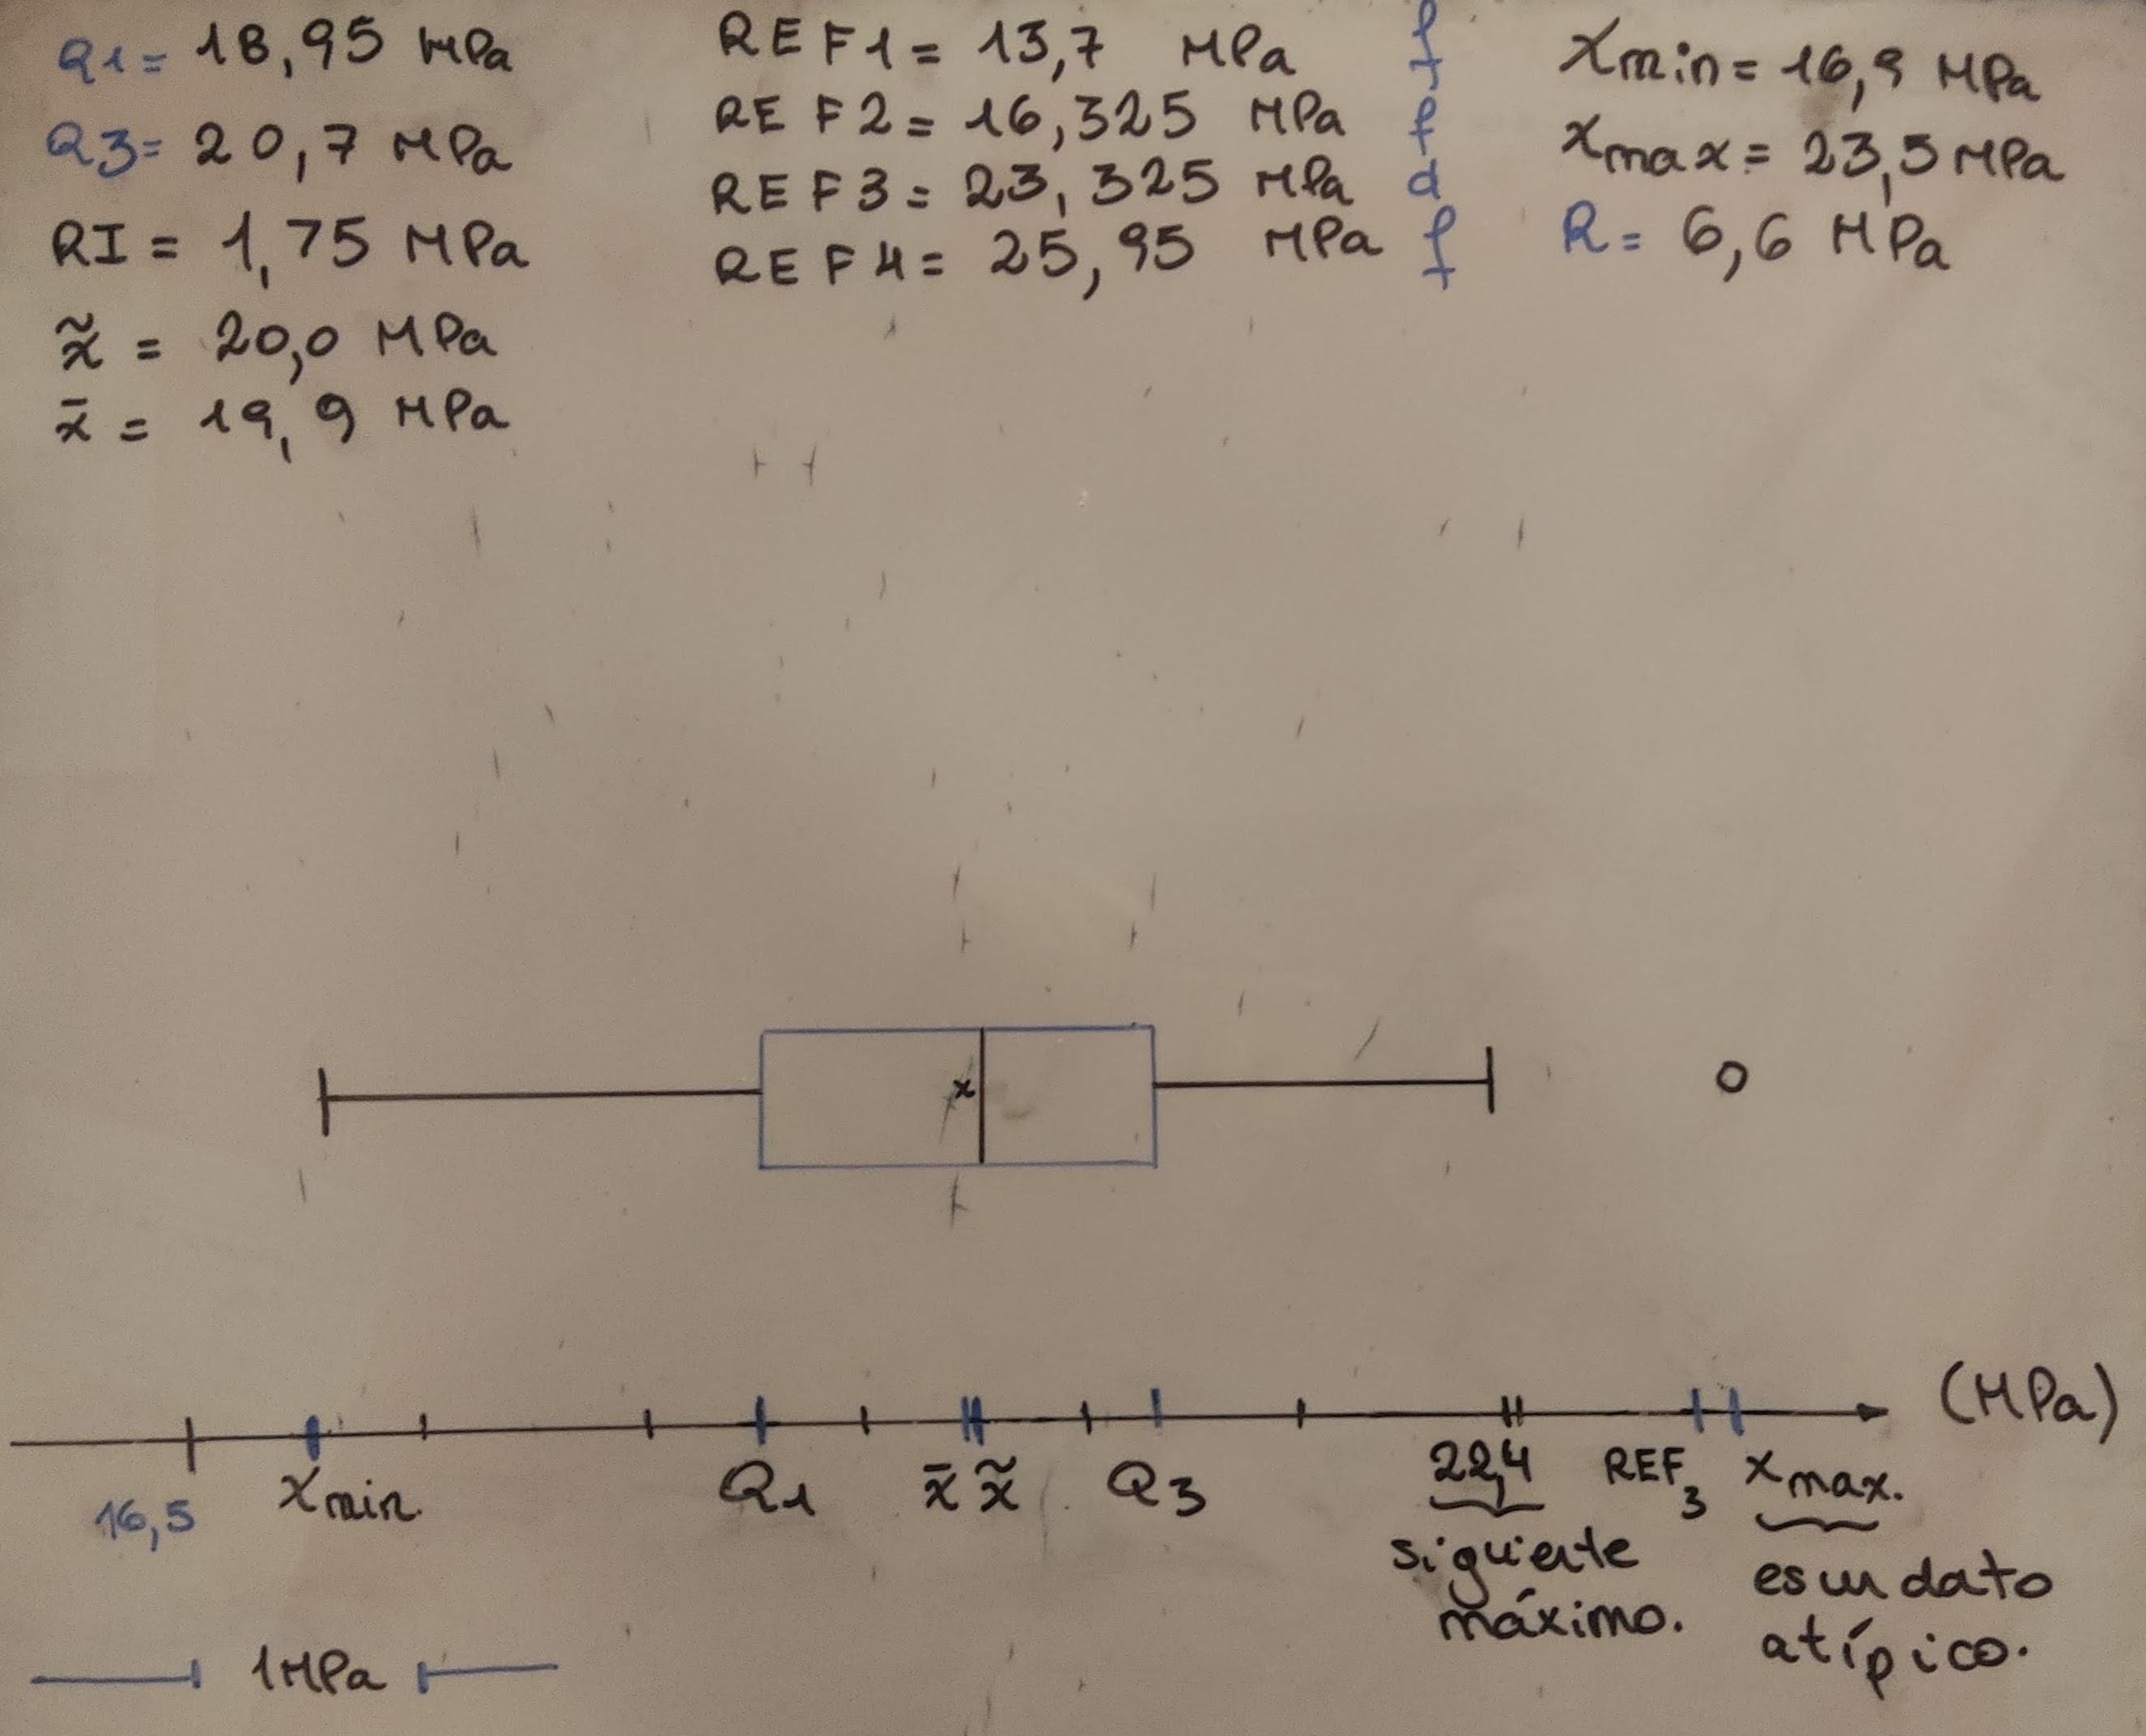 Q1= 18,95 MPa
Q3= 20,7 MPa
RI = 1,75 MPa
x̃ = 20,0 MPa
x̄ = 19,9 MPa
REF1= 13,7 MPa f
REF2= 16,325 MPa f
REF3= 23,325 MPa d
REF4= 25,95 MPa f
xmin= 16,9 MPa
xmax= 23,5 MPa
R= 6,6 MPa
x
(MPa)
16,5 xmin. Q1 x̄ x̃ Q3 22,4 REF3 xmax.
siguiente
máximo.
es un dato
atípico.
1MPa